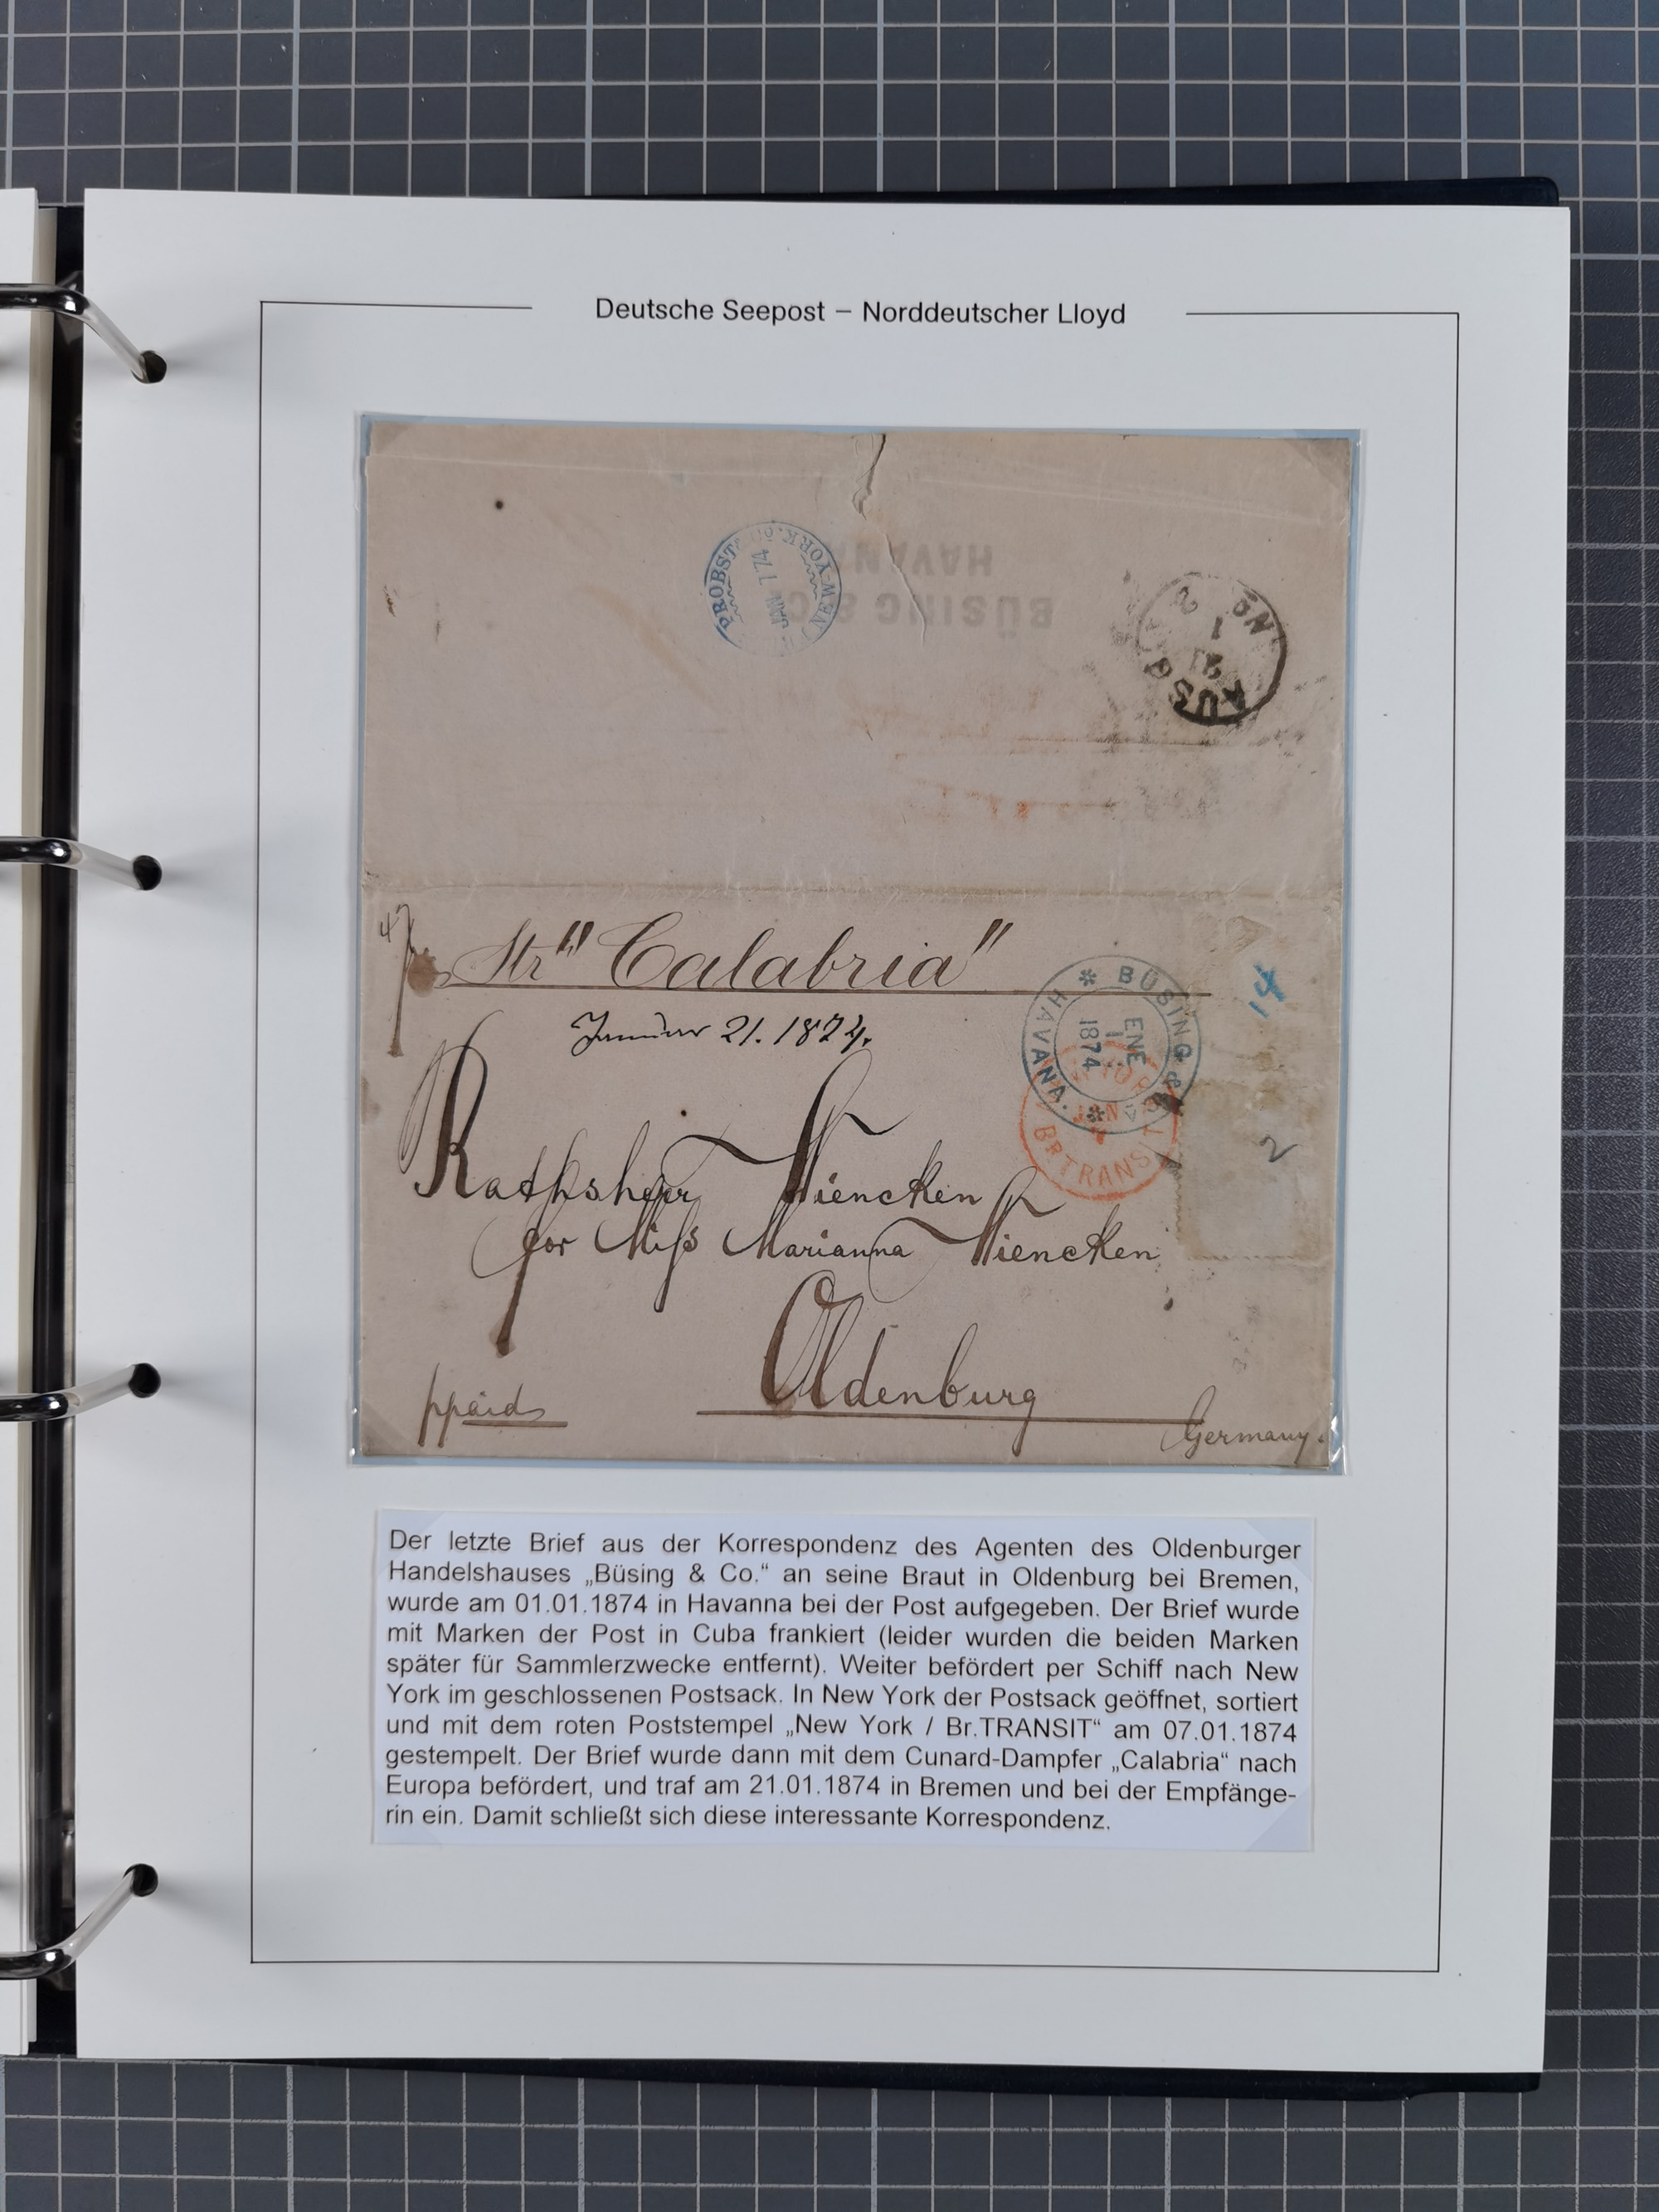 Deutsche Seepost – Norddeutscher Lloyd
NEW-YORK
JAN 7 74
PROBST
HAVANA
BÜSING & C
AUSG
21
1
Str "Calabria"
Januar 21. 1874.
* BÜSING & HAVANA. *
ENE
1
1874
JAN
BR TRANSIT
2
Rathsherr Wiencken
for Miss Marianna Wiencken
Oldenburg
ppaid
Germany.
Der letzte Brief aus der Korrespondenz des Agenten des Oldenburger
Handelshauses „Büsing & Co.“ an seine Braut in Oldenburg bei Bremen,
wurde am 01.01.1874 in Havanna bei der Post aufgegeben. Der Brief wurde
mit Marken der Post in Cuba frankiert (leider wurden die beiden Marken
später für Sammlerzwecke entfernt). Weiter befördert per Schiff nach New
York im geschlossenen Postsack. In New York der Postsack geöffnet, sortiert
und mit dem roten Poststempel „New York / Br.TRANSIT“ am 07.01.1874
gestempelt. Der Brief wurde dann mit dem Cunard-Dampfer „Calabria“ nach
Europa befördert, und traf am 21.01.1874 in Bremen und bei der Empfänge-
rin ein. Damit schließt sich diese interessante Korrespondenz.